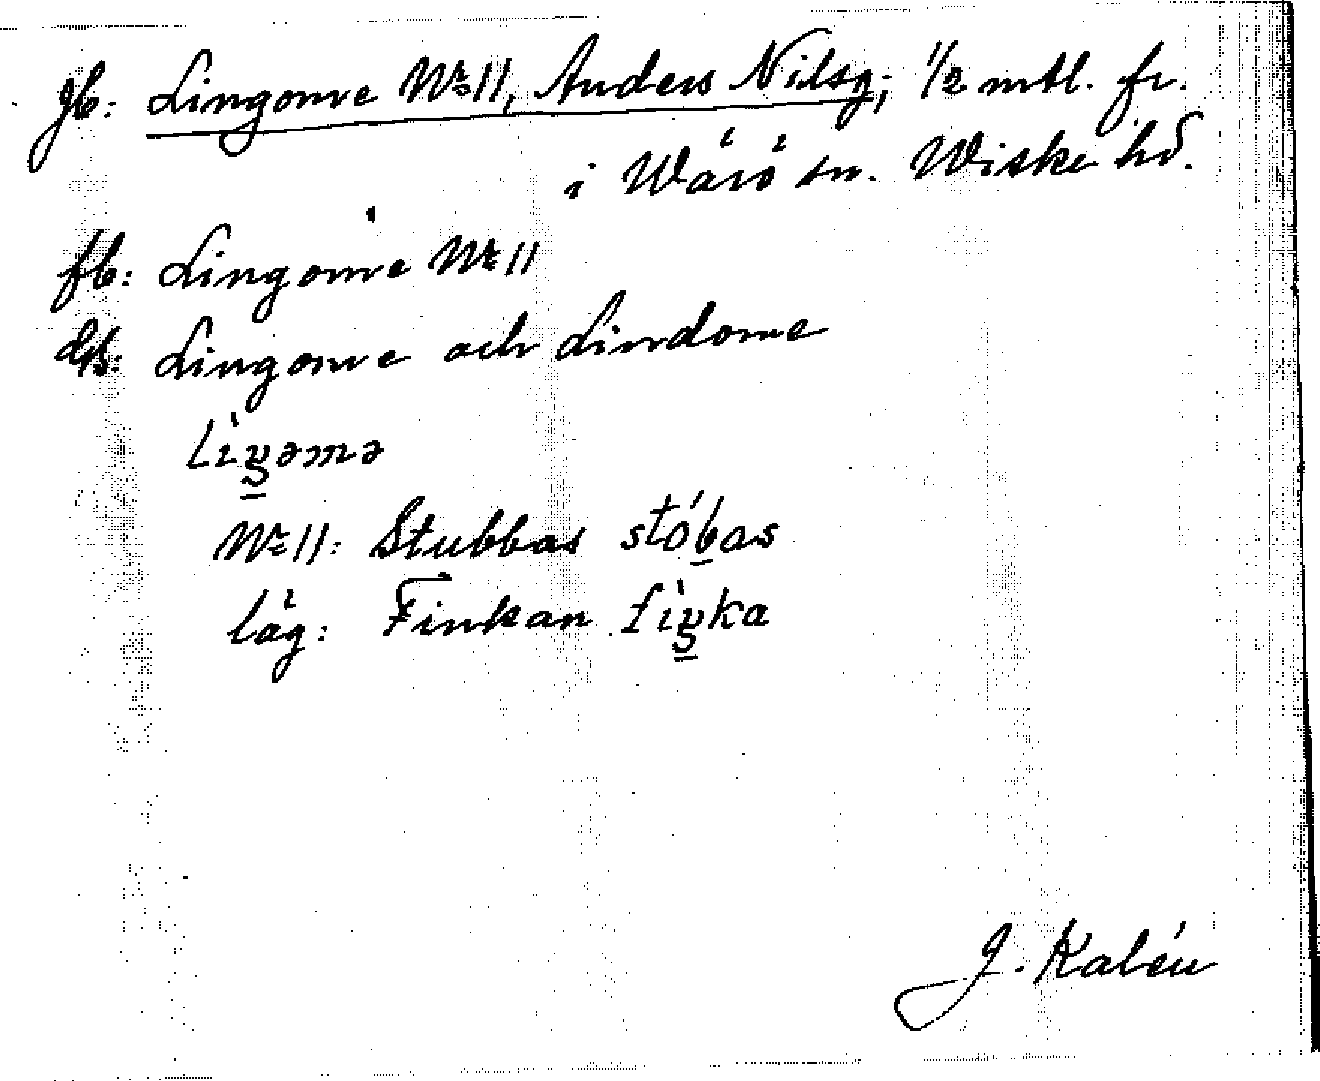 Jb: Lingome No 11, Anders Nilsg; 1/2 mtl. fr.
i Wärö sn. Wiske hd.
fb: Lingome No 11
Lingome och Lindome
No 11: Stubbas stóbas
låg: Finkan
J. Kalén